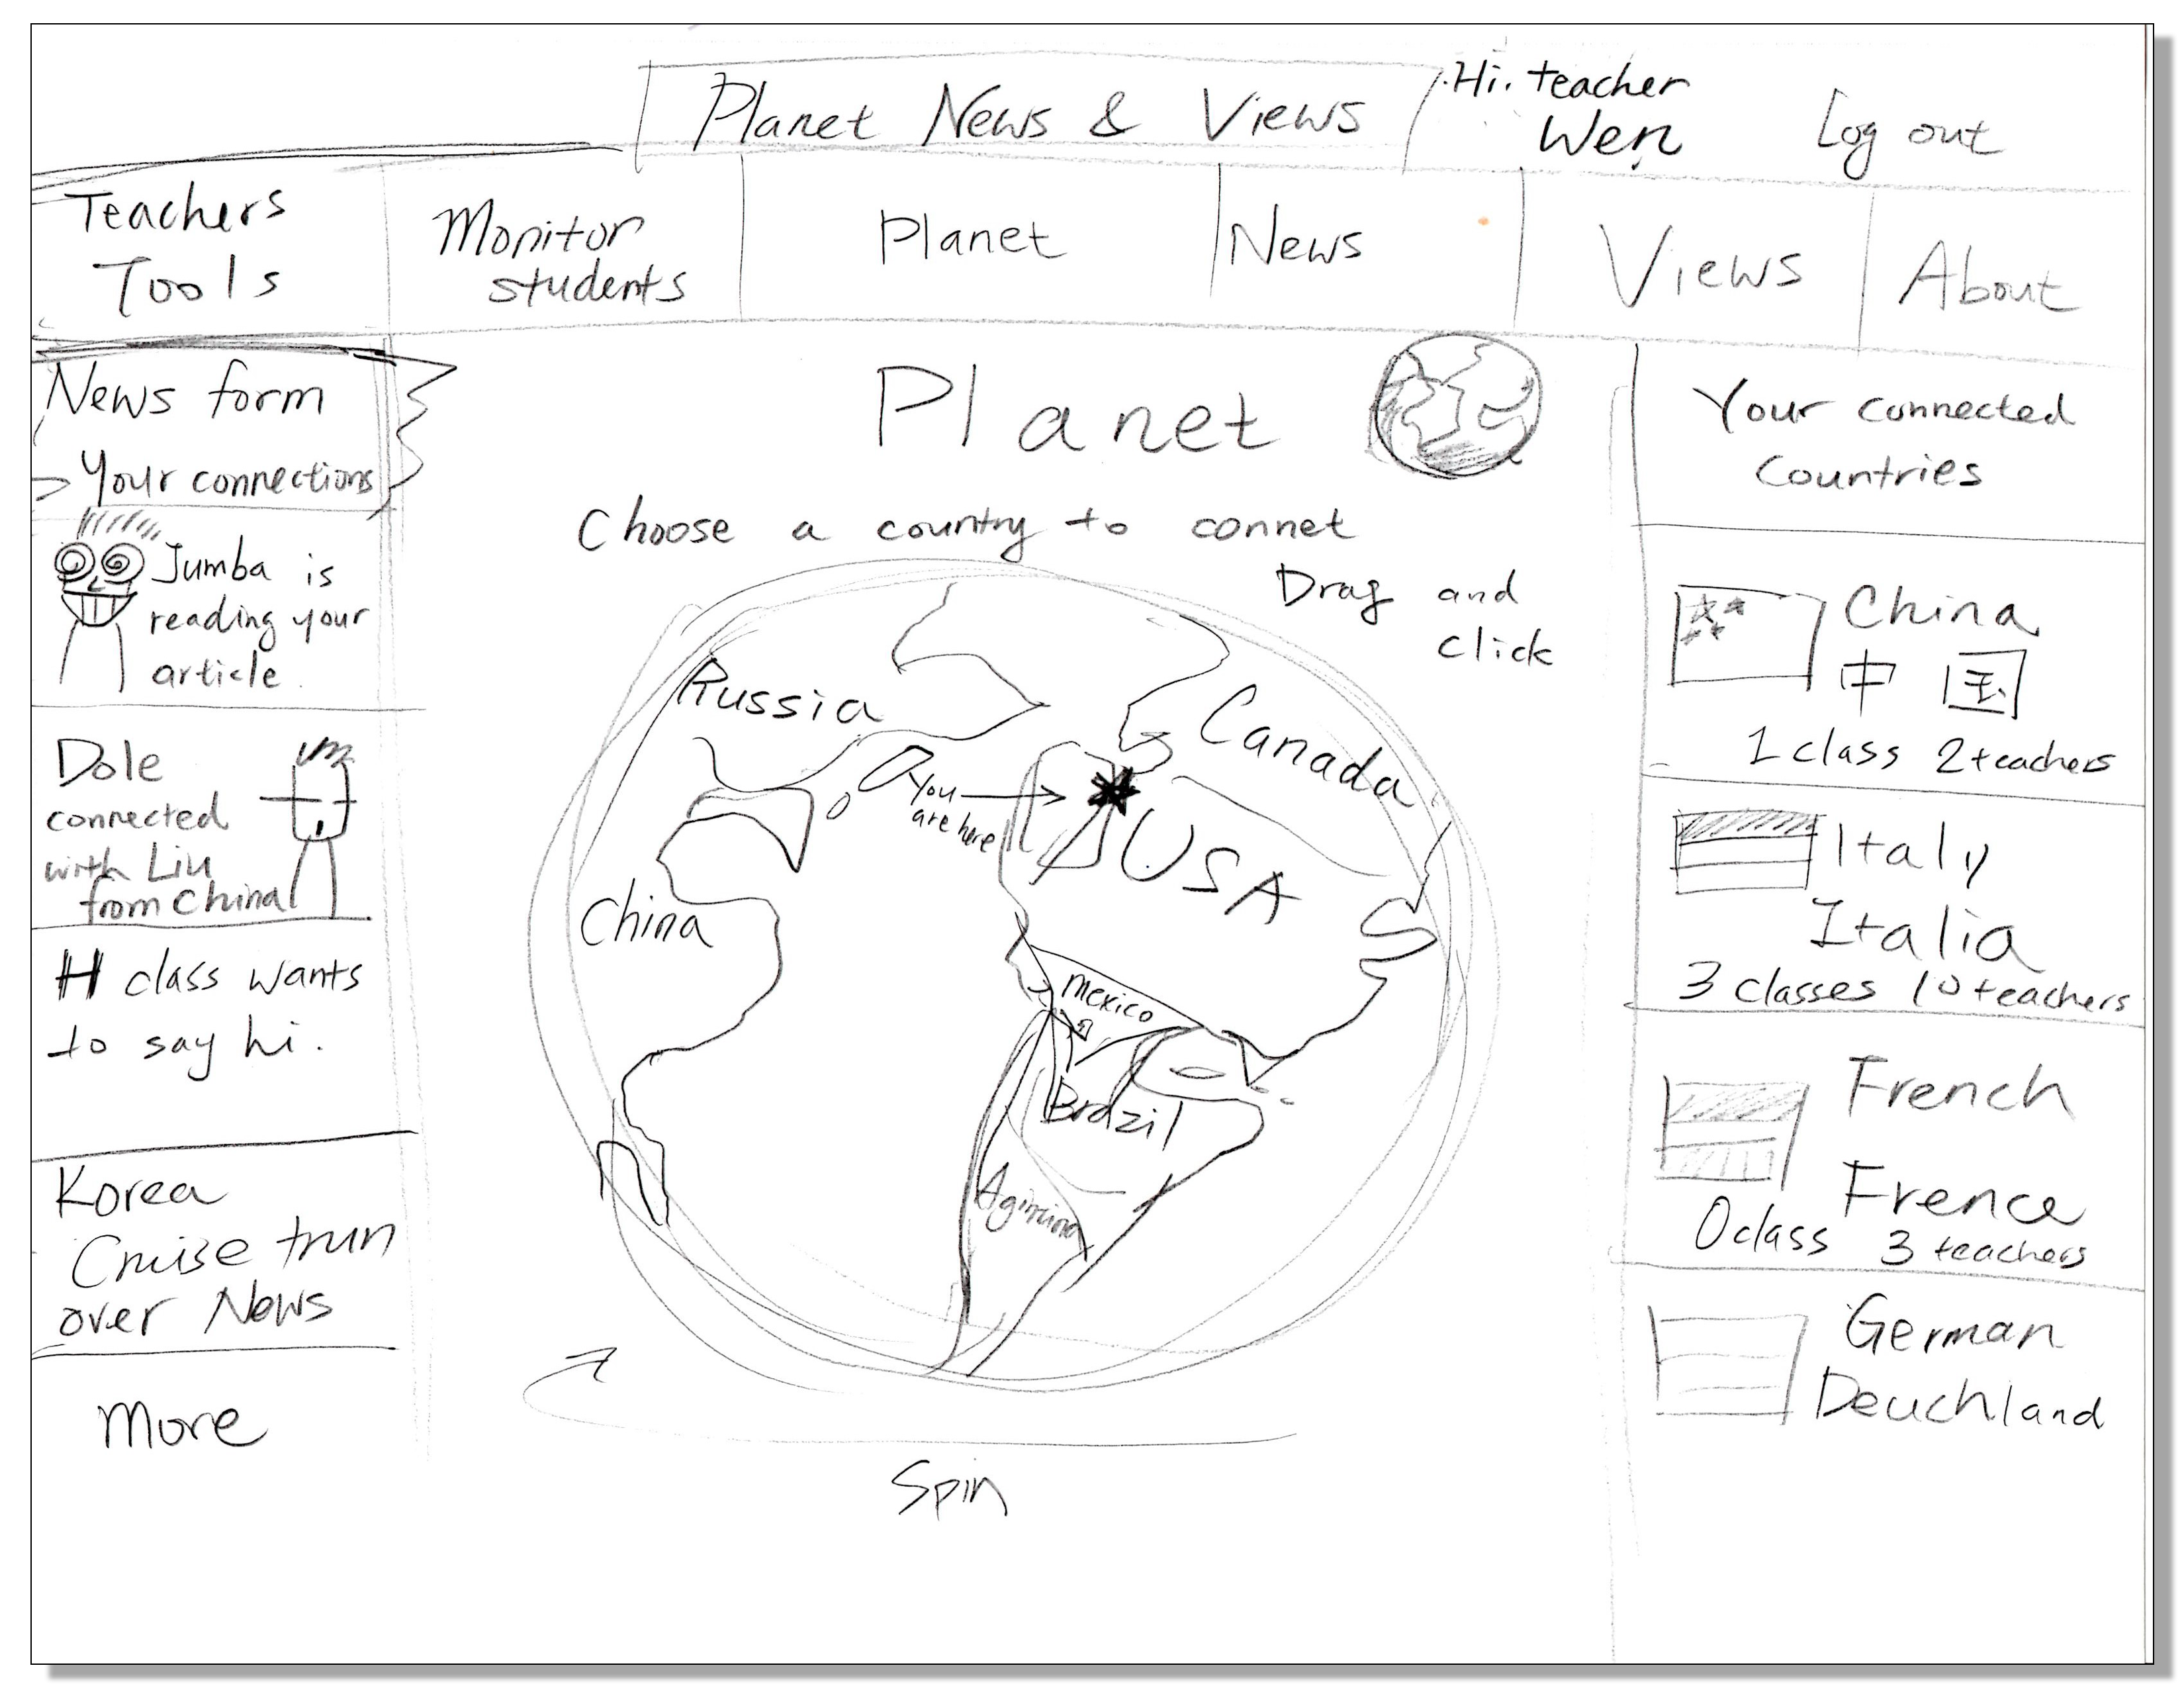 Planet News & Views
Hi. teacher
Wen
Log out
Teachers
Tools
Monitor
students
Planet
News
Views
About
News form
Your connections
Jumba is
reading your
article.
Dole
connected
with Liu
from China
H class wants
to say hi.
Korea
Cruise trun
over News
More
Planet
Choose a country to connet
Drag and
click
Russia
Canada
You
are here
USA
China
Mexico
Brazil
Spin
Your connected
Countries
China
中国
1 class 2 teachers
Italy
Italia
3 classes 10 teachers
French
Frence
0 class 3 teachers
German
Deuchland